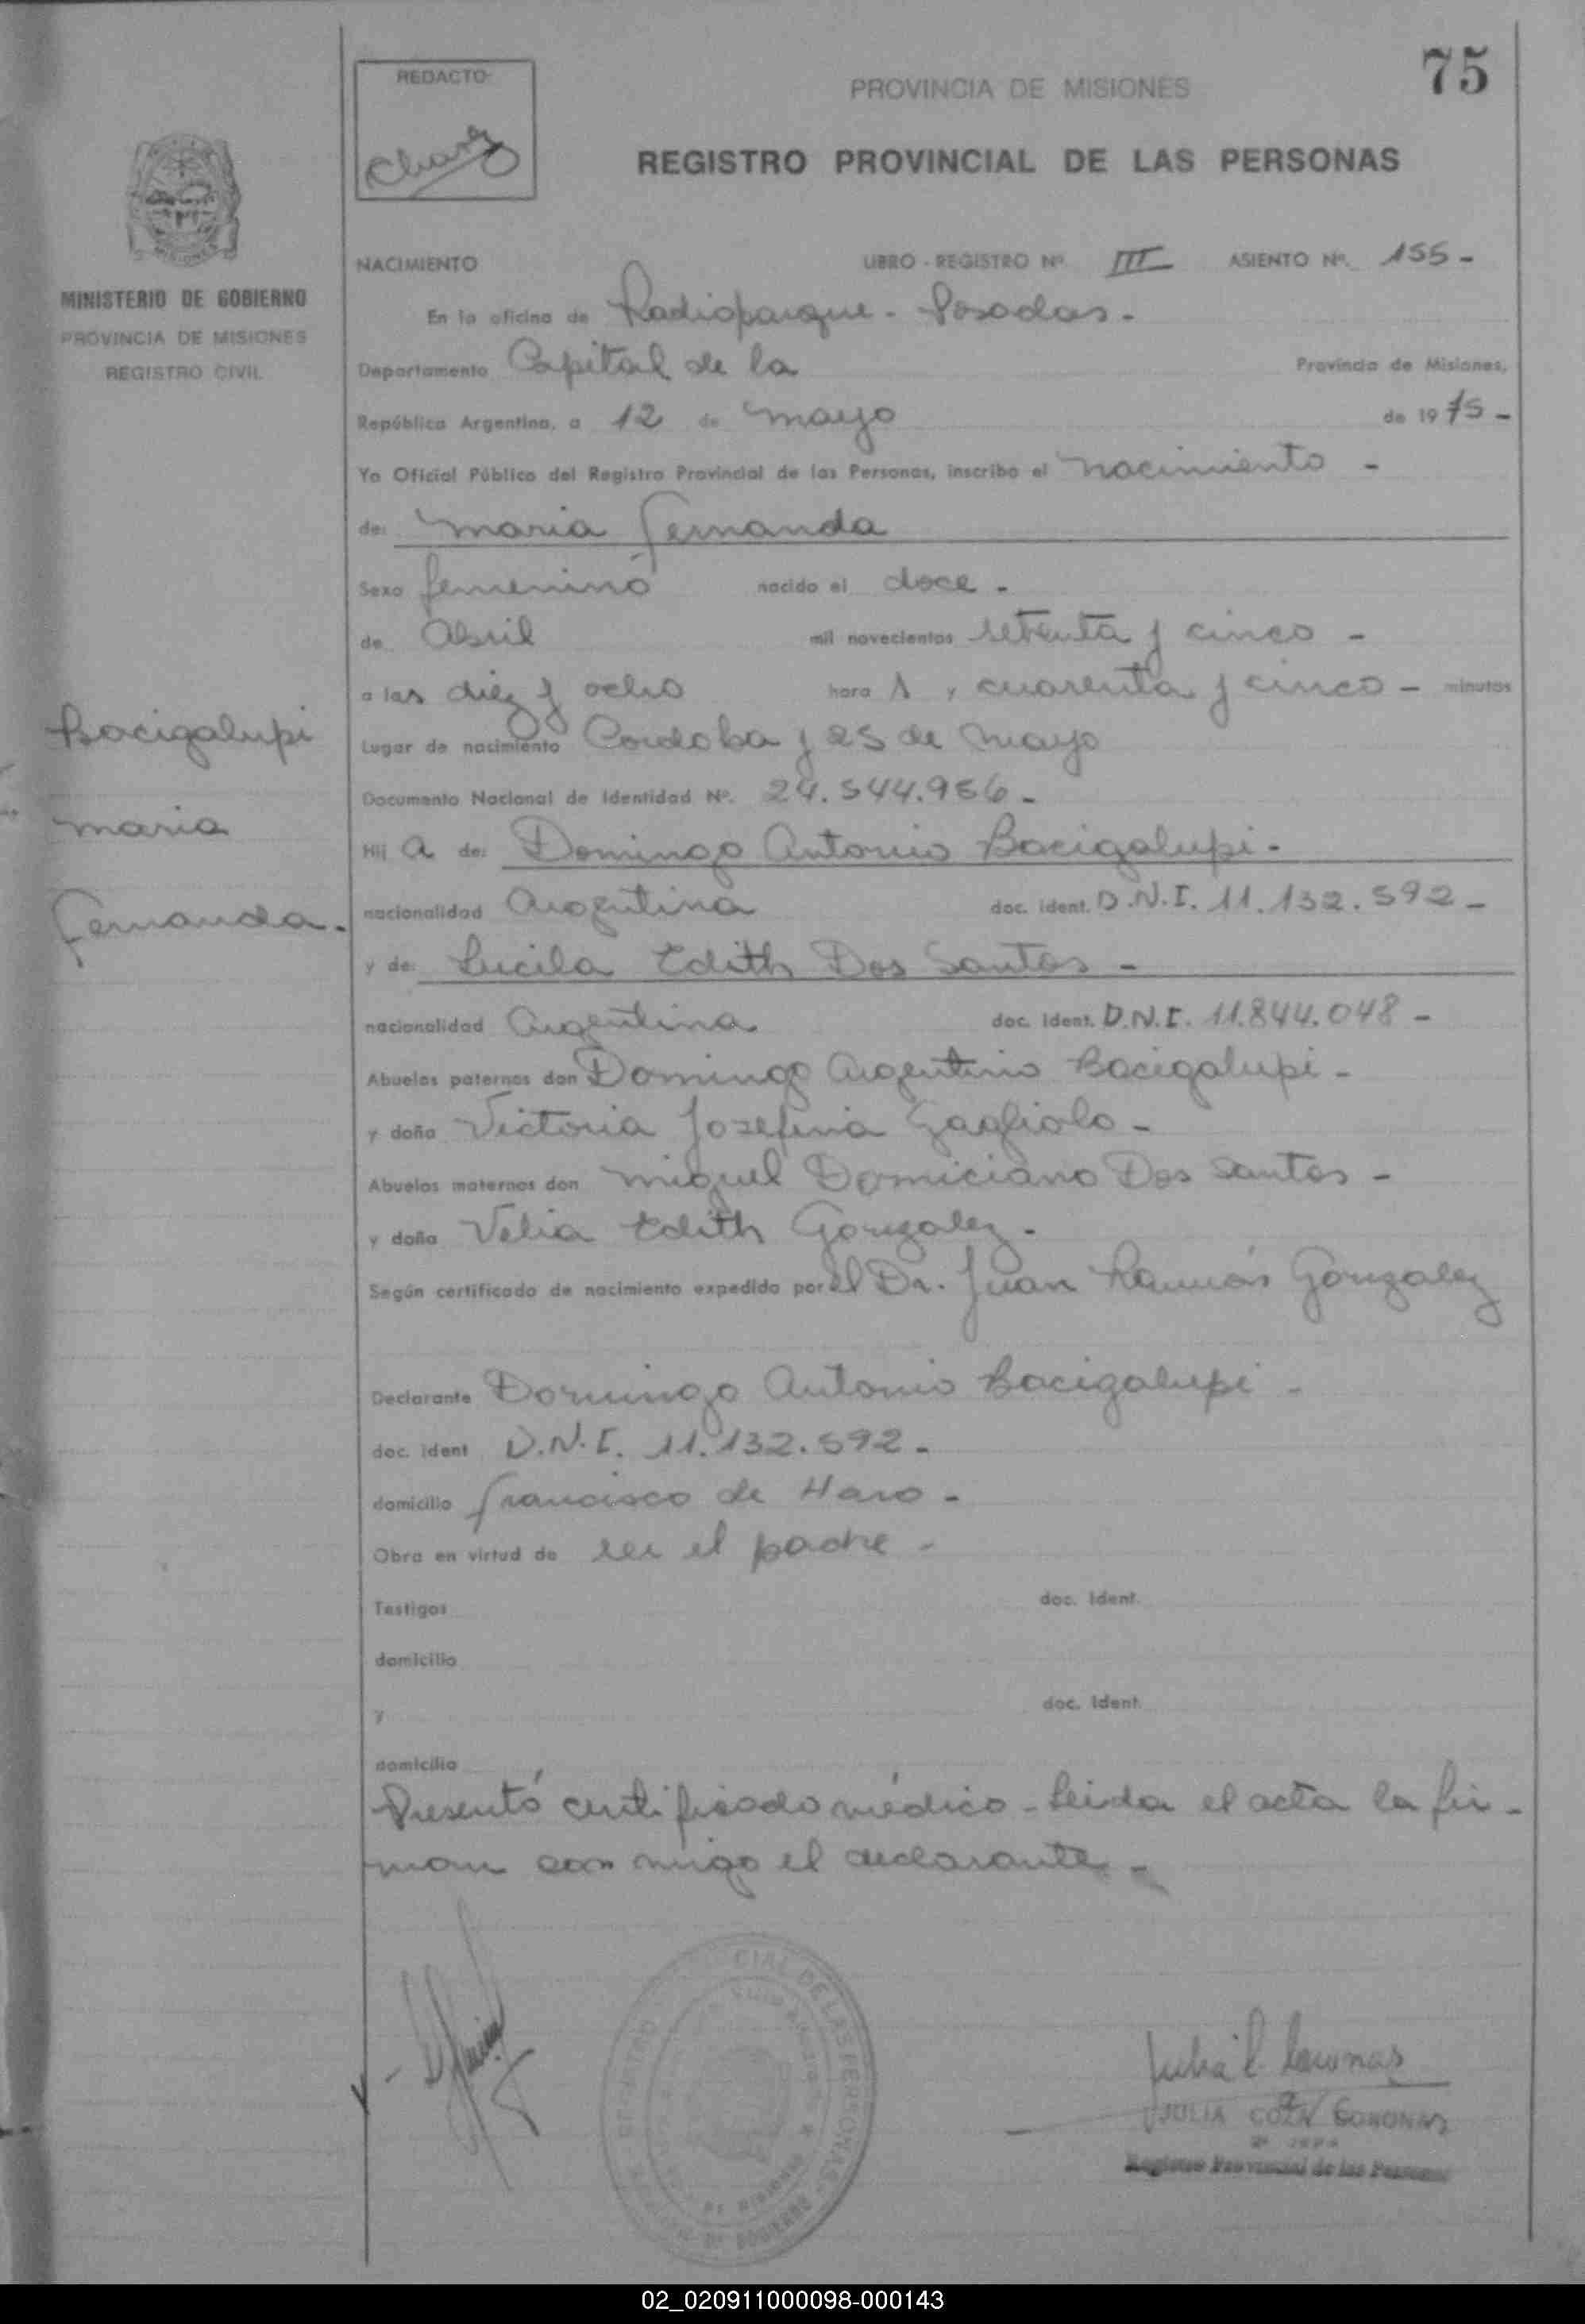 75
REDACTO
PROVINCIA DE MISIONES
REGISTRO PROVINCIAL DE LAS PERSONAS
MINISTERIO DE GOBIERNO
PROVINCIA DE MISIONES
REGISTRO CIVIL
NACIMIENTO LIBRO - REGISTRO Nº. III ASIENTO Nº. 155 -
En la oficina de Radioparque - Posadas -
Departamento Capital de la Provincia de Misiones,
República Argentina, a 12 de mayo de 1975 -
Yo Oficial Público del Registro Provincial de las Personas, inscribo el nacimiento -
de: maria Fernanda
Sexo femenino nacido el doce -
de Abril mil novecientos setenta y cinco -
a las diez y ocho hora s y cuarenta y cinco - minutos
Lugar de nacimiento Cordoba y 25 de mayo
Documento Nacional de Identidad Nº. 24.544.956 -
Hij a de: Domingo Antonio Bacigalupi -
nacionalidad Argentina doc. ident. D.N.I. 11.132.592 -
y de: Lucila Edith Dos Santos -
nacionalidad Argentina doc. ident. D.N.I. 11.844.048 -
Abuelos paternos don Domingo Argentino Bacigalupi -
y doña Victoria Josefina Gagliolo -
Abuelos maternos don miguel Domiciano Dos Santos -
y doña Velia Edith Gonzalez -
Según certificado de nacimiento expedido por el Dr. Juan Ramón Gonzalez
Declarante Domingo Antonio Bacigalupi -
doc. ident D.N.I. 11.132.592 -
domicilio Francisco de Haro -
Obra en virtud de ser el padre -
Testigos doc. ident.
domicilio
y doc. ident.
domicilio
Presentó certificado médico - Leida el acta la fir-
man con migo el declarante -
Bacigalupi
maria
Fernanda -
JULIA CORONAS
Registro Provincial de las Personas
02_020911000098-000143